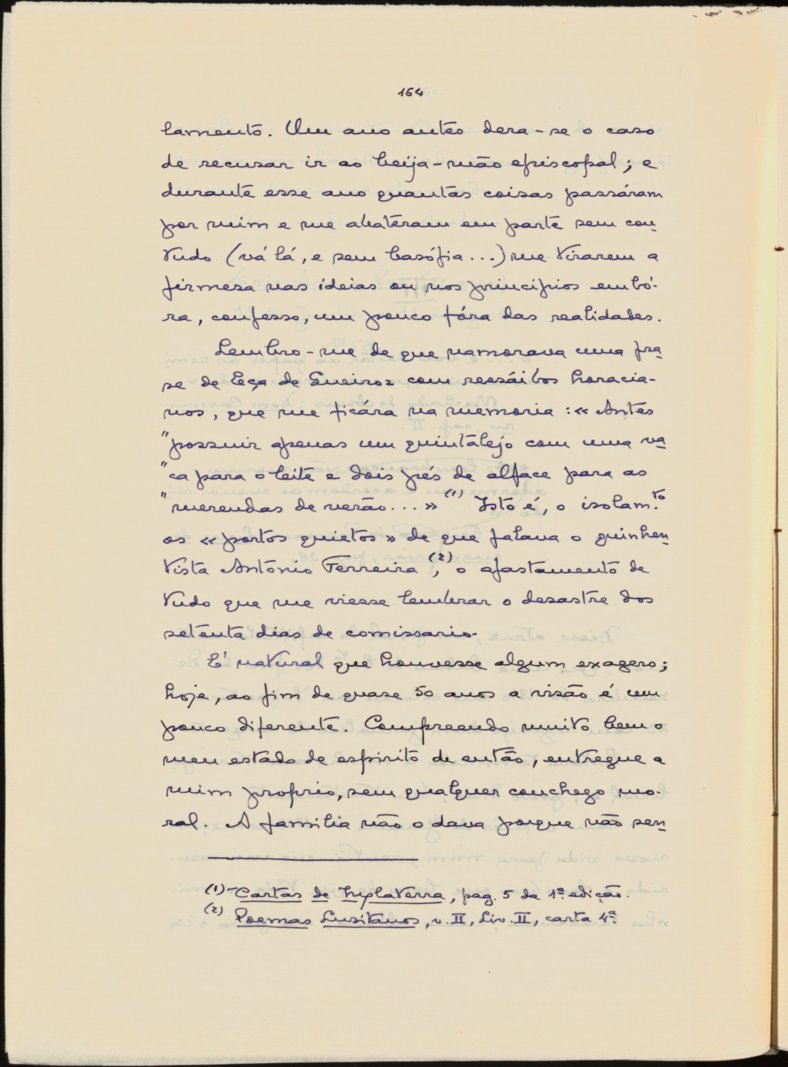 164
lamento. Um ano antes dera-se o caso
de recusar ir ao beija-mão episcopal; e
durante esse ano quantas coisas passáram
por mim e me abateram em parte sem con
tudo (vá lá, e sem basófia...) me virarem a
firmesa nas ideias ou nos princípios embó-
ra, confesso, um pouco fóra das realidades.
Lembro-me de que namorava uma fra
se de Eça de Queiroz com ressáibos horacia-
nos, que me ficára na memoria: «Antes
"possuir apenas um quintalejo com uma va
"ca para o leite e dois pés de alface para as
"merendas de verão...» (1) Isto é, o isolam.to
os «portos quietos» de que falava o quinhen
tista António Ferreira (2), o afastamento de
tudo que me viesse lembrar o desastre dos
setenta dias de comissario.
E' natural que houvesse algum exagero;
hoje, ao fim de quase 50 anos a visão é um
pouco diferente. Compreendo muito bem o
meu estado de espirito de então, entregue a
mim proprio, sem qualquer conchego mo-
ral. A familia não o dava porque não sen
(1) Cartas de Inglaterra, pag. 5 da 1ª edição.
(2) Poemas Lusitanos, v. II, Liv. II, carta 4ª